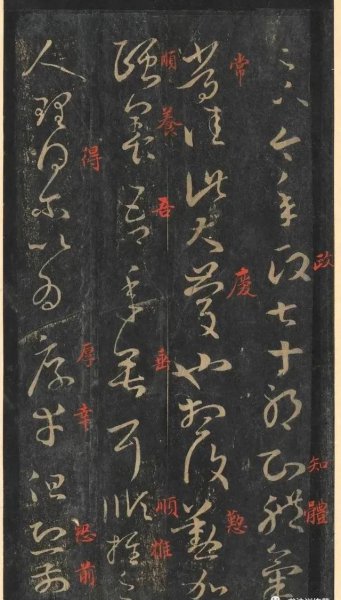 足下今年政七十耶知體氣
政 知 體
常佳此大慶也想復懃加
常 慶 懃
頤養吾年垂耳順推之
養 吾 垂 順 推
人理得爾以為厚幸但恐前
得 厚 幸 恐 前